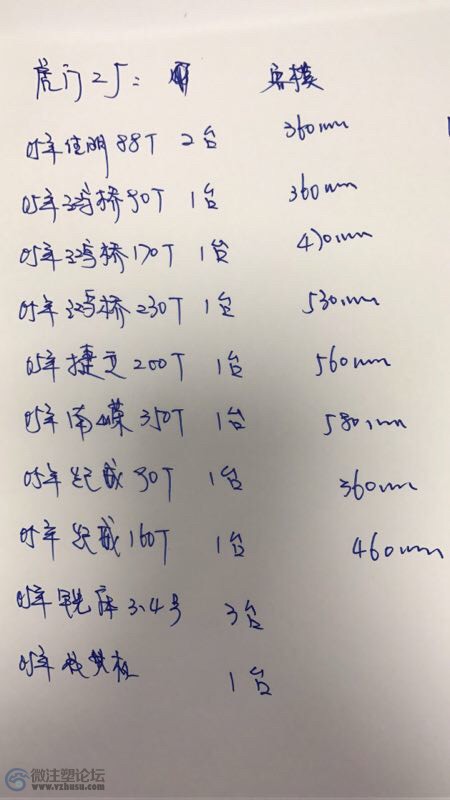 虎门2厂: 容模
05年佳明88T 2台 360mm
05年鸿桥90T 1台 360mm
05年鸿桥170T 1台 470mm
05年鸿桥230T 1台 530mm
05年捷文200T 1台 560mm
05年南嵘350T 1台 580mm
05年纪威90T 1台 360mm
05年纪威160T 1台 460mm
05年铣床3.4号 3台
05年 1台
微注塑论坛
www.vzhusu.com